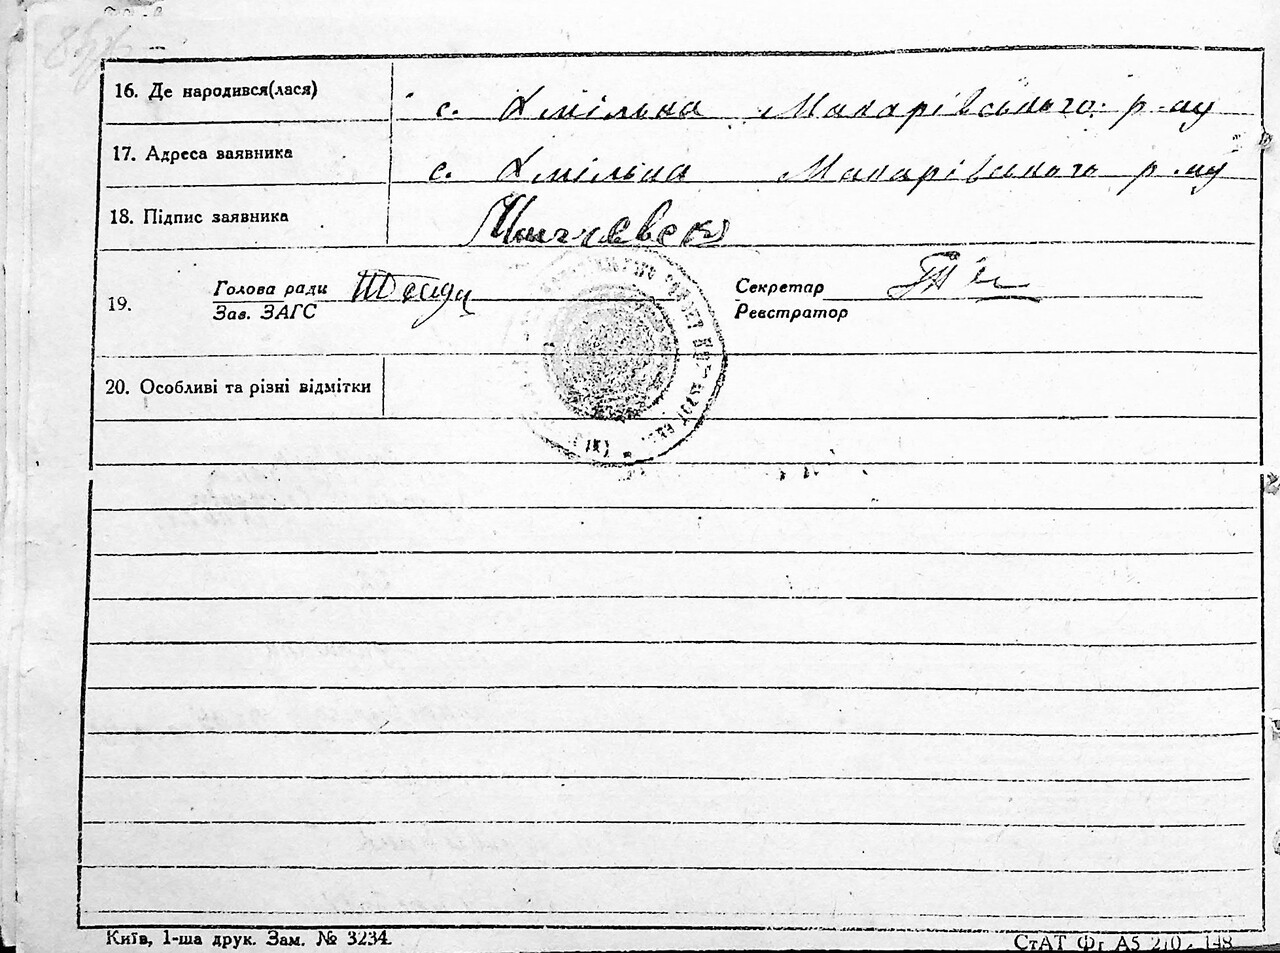 16. Де народився(лася) с. Хмільна Макарівського р-ну
17. Адреса заявника с. Хмільна Макарівського р-ну
18. Підпис заявника
19. Голова ради Секретар
Зав. ЗАГС Реєстратор
20. Особливі та різні відмітки
Київ, 1-ша друк. Зам. № 3234. СтАТ Фг А5 210 148